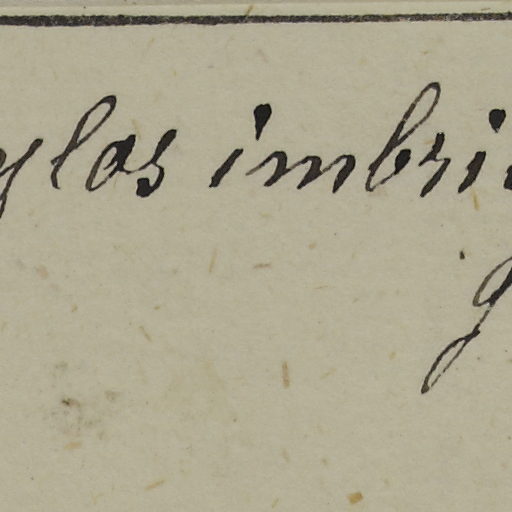 ylos imbri
g